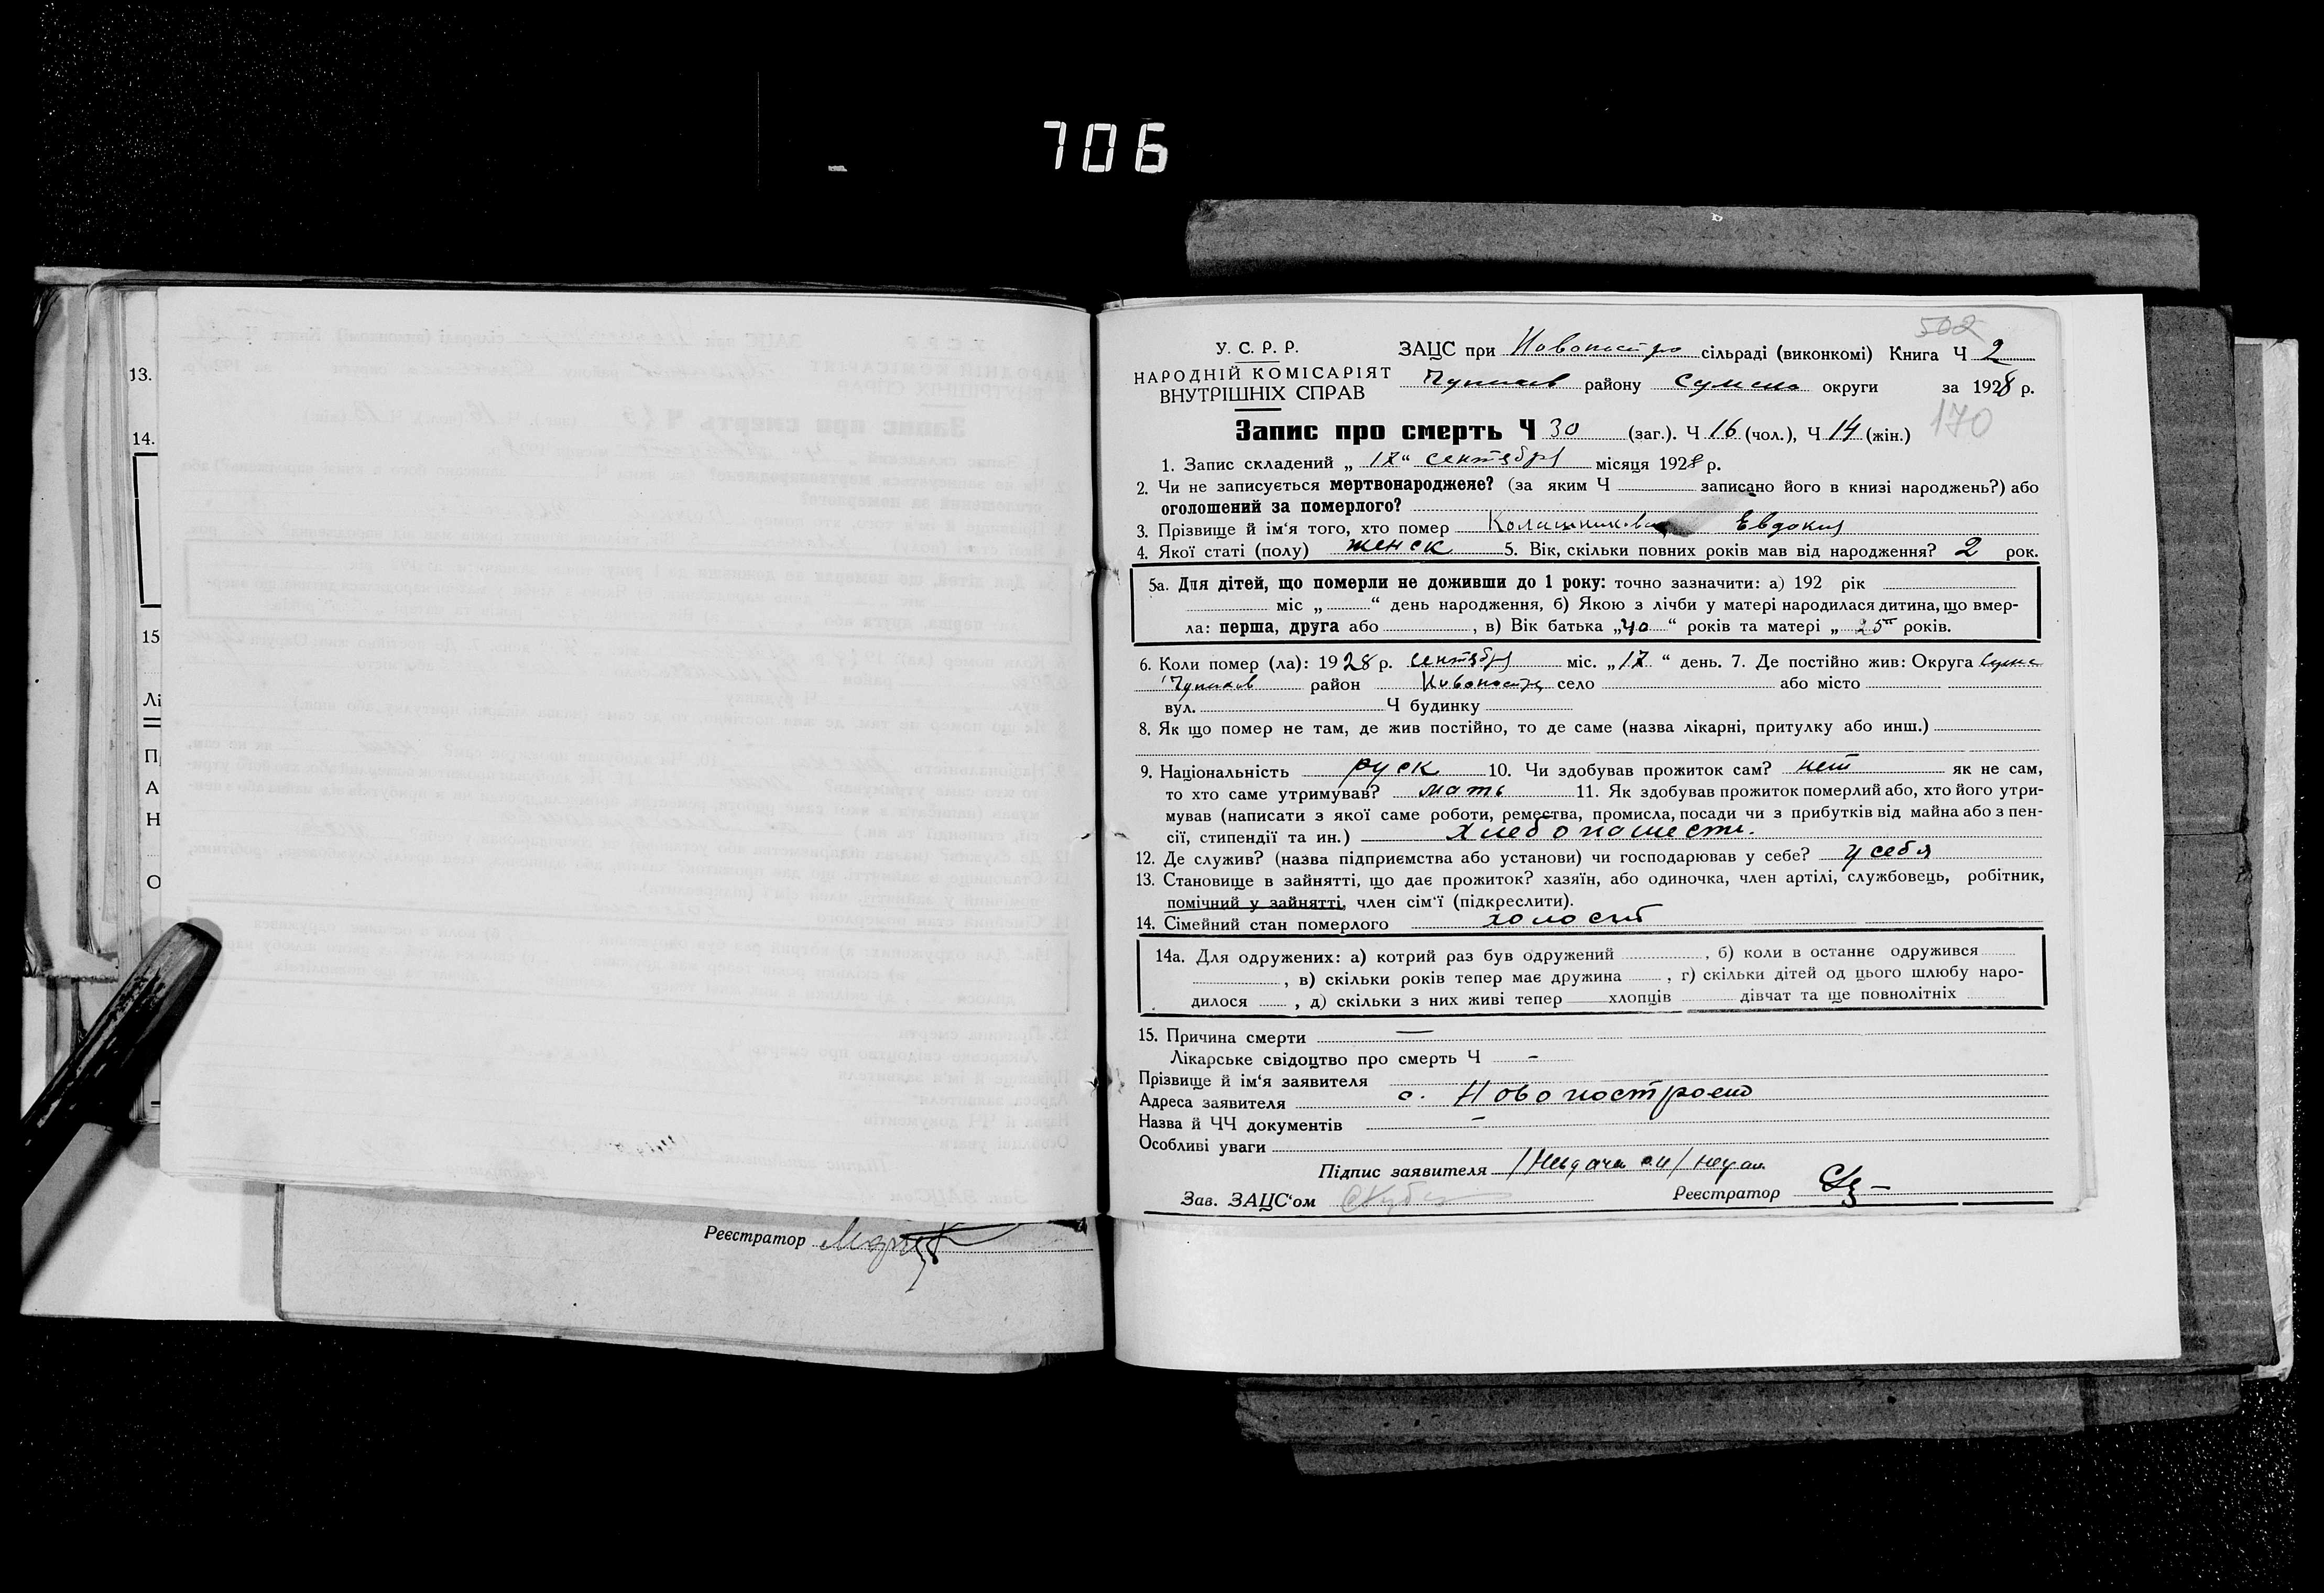 706
13.
14.
15
Лі
П
А
Н
О
Реєстратор
502
У. С. Р. Р.
НАРОДНІЙ КОМІСАРІЯТ
ВНУТРІШНІХ СПРАВ
ЗАЦС при Новопостро сільраді (виконкомі) Книга Ч 2
району Сумско округи за 1928 р.
170
Запис про смерть Ч 30 (заг.). Ч 16 (чол.), Ч 14 (жін.)
1. Запис складений „ 17 “ сентября місяця 1928 р.
2. Чи не записується мертвонароджене? (за яким Ч записано його в книзі народжень?) або
оголошений за померлого?
3. Прізвище й ім'я того, хто помер Колашникова Евдокия
4. Якої статі (полу) женск 5. Вік, скільки повних років мав від народження? 2 рок.
5а. Для дітей, що померли не доживши до 1 року: точно зазначити: а) 192 рік
міс „ “ день народження, б) Якою з лічби у матері народилася дитина, що вмер-
ла: перша, друга або , в) Вік батька „ 40 “ років та матері „ 25 “ років.
6. Коли помер (ла): 1928 р. сентябр міс. „ 17 “ день. 7. Де постійно жив: Округа Сумс
район Новопостр село або місто
вул. Ч будинку
8. Як що помер не там, де жив постійно, то де саме (назва лікарні, притулку або инш.)
9. Національність руск 10. Чи здобував прожиток сам? нет як не сам,
то хто саме утримував? мать 11. Як здобував прожиток померлий або, хто його утри-
мував (написати з якої саме роботи, ремества, промисла, посади чи з прибутків від майна або з пен-
сії, стипендії та ин.) хлебопашеств.
12. Де служив? (назва підприємства або установи) чи господарював у себе? у себя
13. Становище в зайнятті, що дає прожиток? хазяїн, або одиночка, член артілі, службовець, робітник,
помічний у зайнятті, член сім'ї (підкреслити).
14. Сімейний стан померлого холост
14а. Для одружених: а) котрий раз був одружений , б) коли в останнє одружився
, в) скільки років тепер має дружина , г) скільки дітей од цього шлюбу наро-
дилося , д) скільки з них живі тепер хлопців дівчат та ще повнолітніх
15. Причина смерти —
Лікарське свідоцтво про смерть Ч -
Прізвище й ім'я заявителя
Адреса заявителя с. Новопостроено
Назва й ЧЧ документів -
Особливі уваги
Підпис заявителя
Зав. ЗАЦС'ом Реєстратор